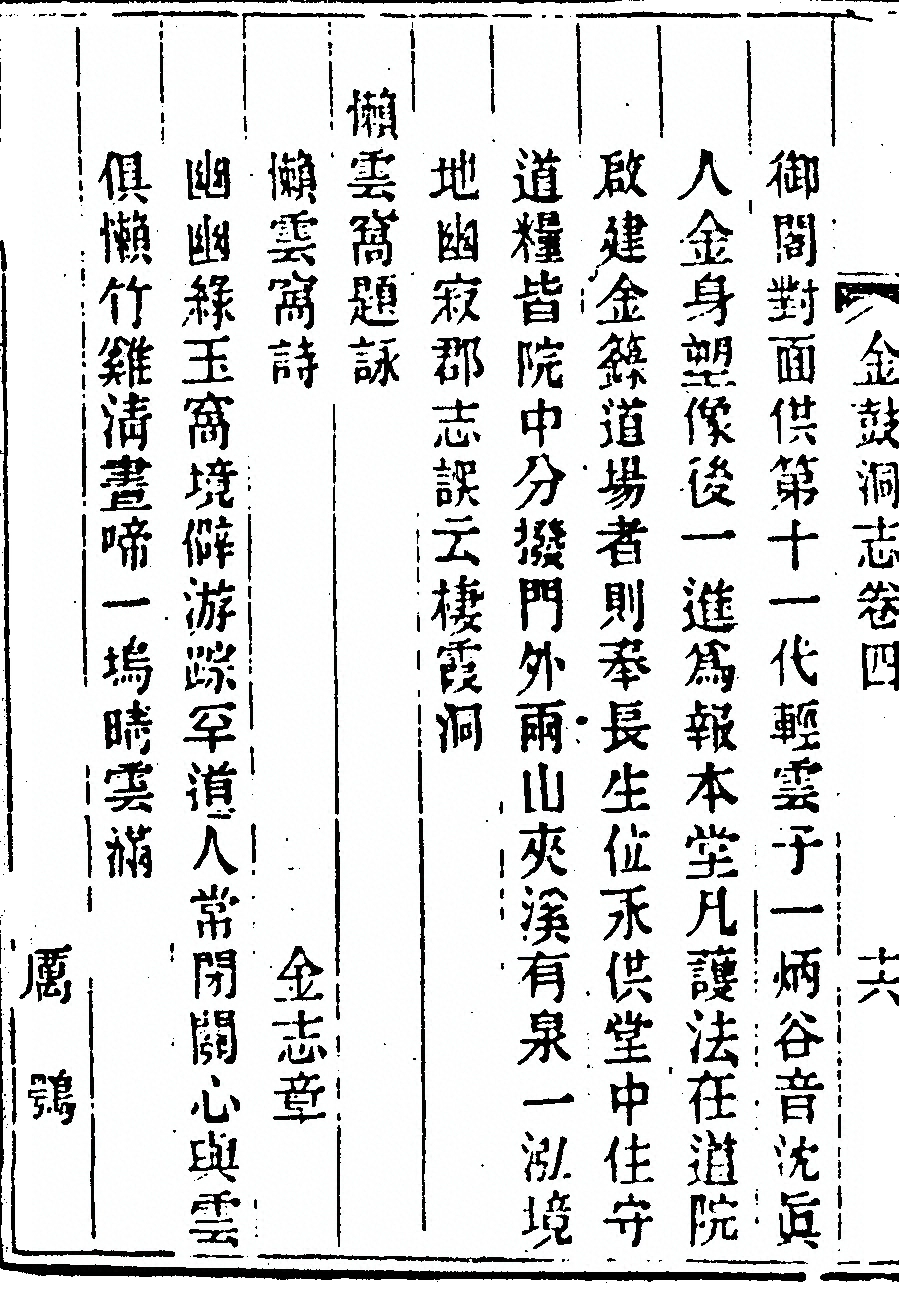 金鼓洞志卷四 十六
御閣對面供第十一代輕雲子一炳谷音沈眞
人金身塑像後一進爲報本堂凡護法在道院
啟建金籙道場者則奉長生位永供堂中住守
道糧皆院中分撥門外兩山夾溪有泉一泓境
地幽寂郡志誤云棲霞洞
懶雲窩題詠
懶雲窩詩 金志章
幽幽綠玉窩境僻游踪罕道人常閉關心與雲
俱懶竹雞清晝啼一塢時雲滿
厲鶚